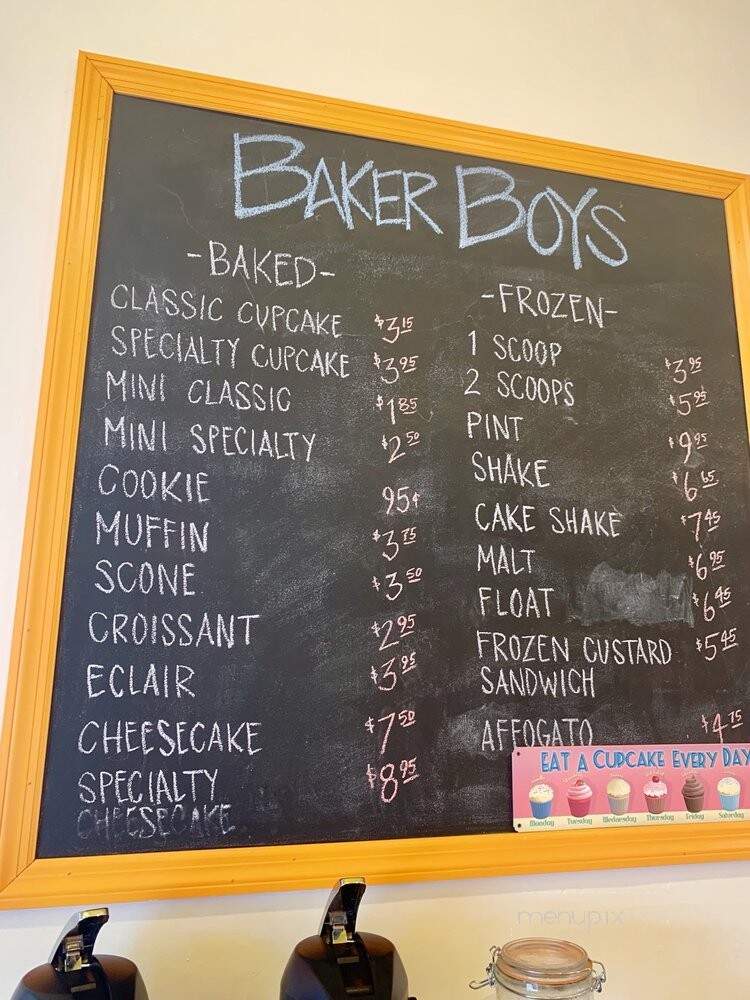 BAKER BOYS
-BAKED-
CLASSIC CUPCAKE $3.15
SPECIALTY CUPCAKE $3.95
MINI CLASSIC $1.85
MINI SPECIALTY $2.50
COOKIE 95¢
MUFFIN $3.75
SCONE $3.50
CROISSANT $2.95
ECLAIR $3.95
CHEESECAKE $7.50
SPECIALTY $8.95
CHEESECAKE
-FROZEN-
1 SCOOP $3.95
2 SCOOPS $5.95
PINT $9.95
SHAKE $6.65
CAKE SHAKE $7.45
MALT $6.95
FLOAT $6.45
FROZEN CUSTARD $5.45
SANDWICH
AFFOGATO $4.75
EAT A CUPCAKE EVERY DAY
Monday Tuesday Wednesday Thursday Friday Saturday
menupix